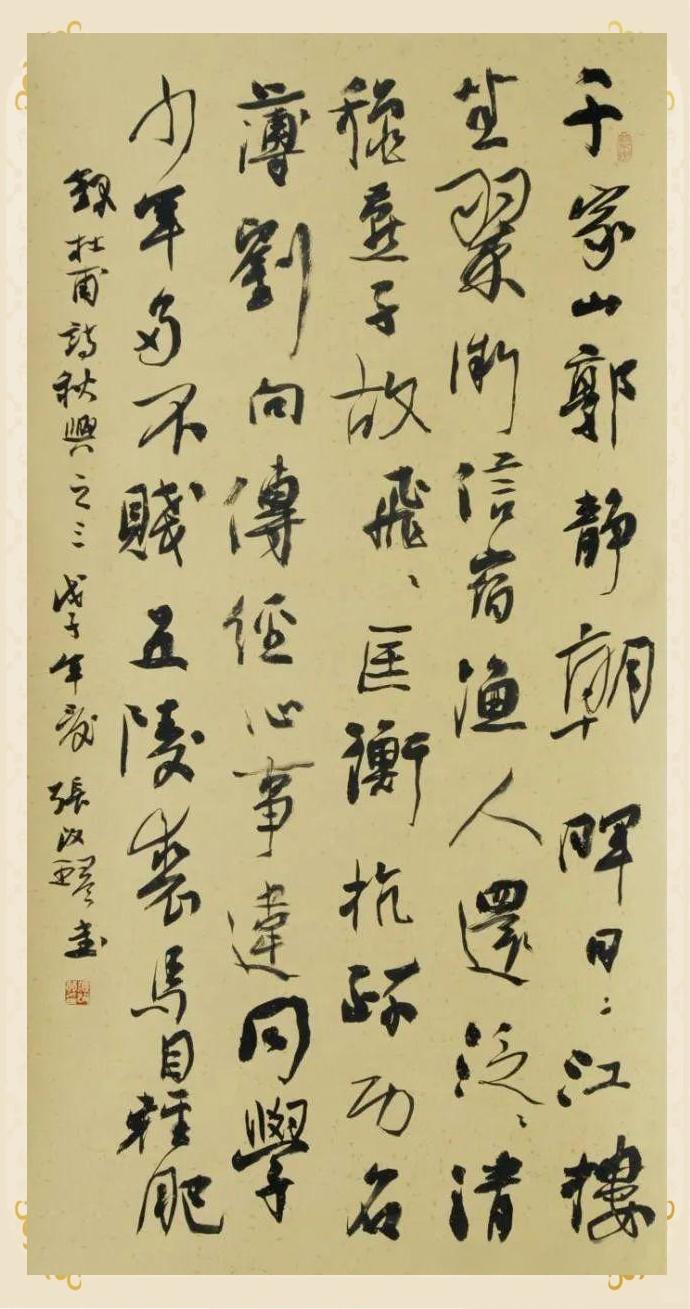 千家山郭静朝暉日〻江樓
坐翠微信宿漁人還泛〻清
穐燕子故飛〻匡衡抗疏功名
薄劉向傳經心事違同學
少年多不賤五陵裘馬自輕肥
録杜甫詩秋興之三 戊子年夏 張改琴書